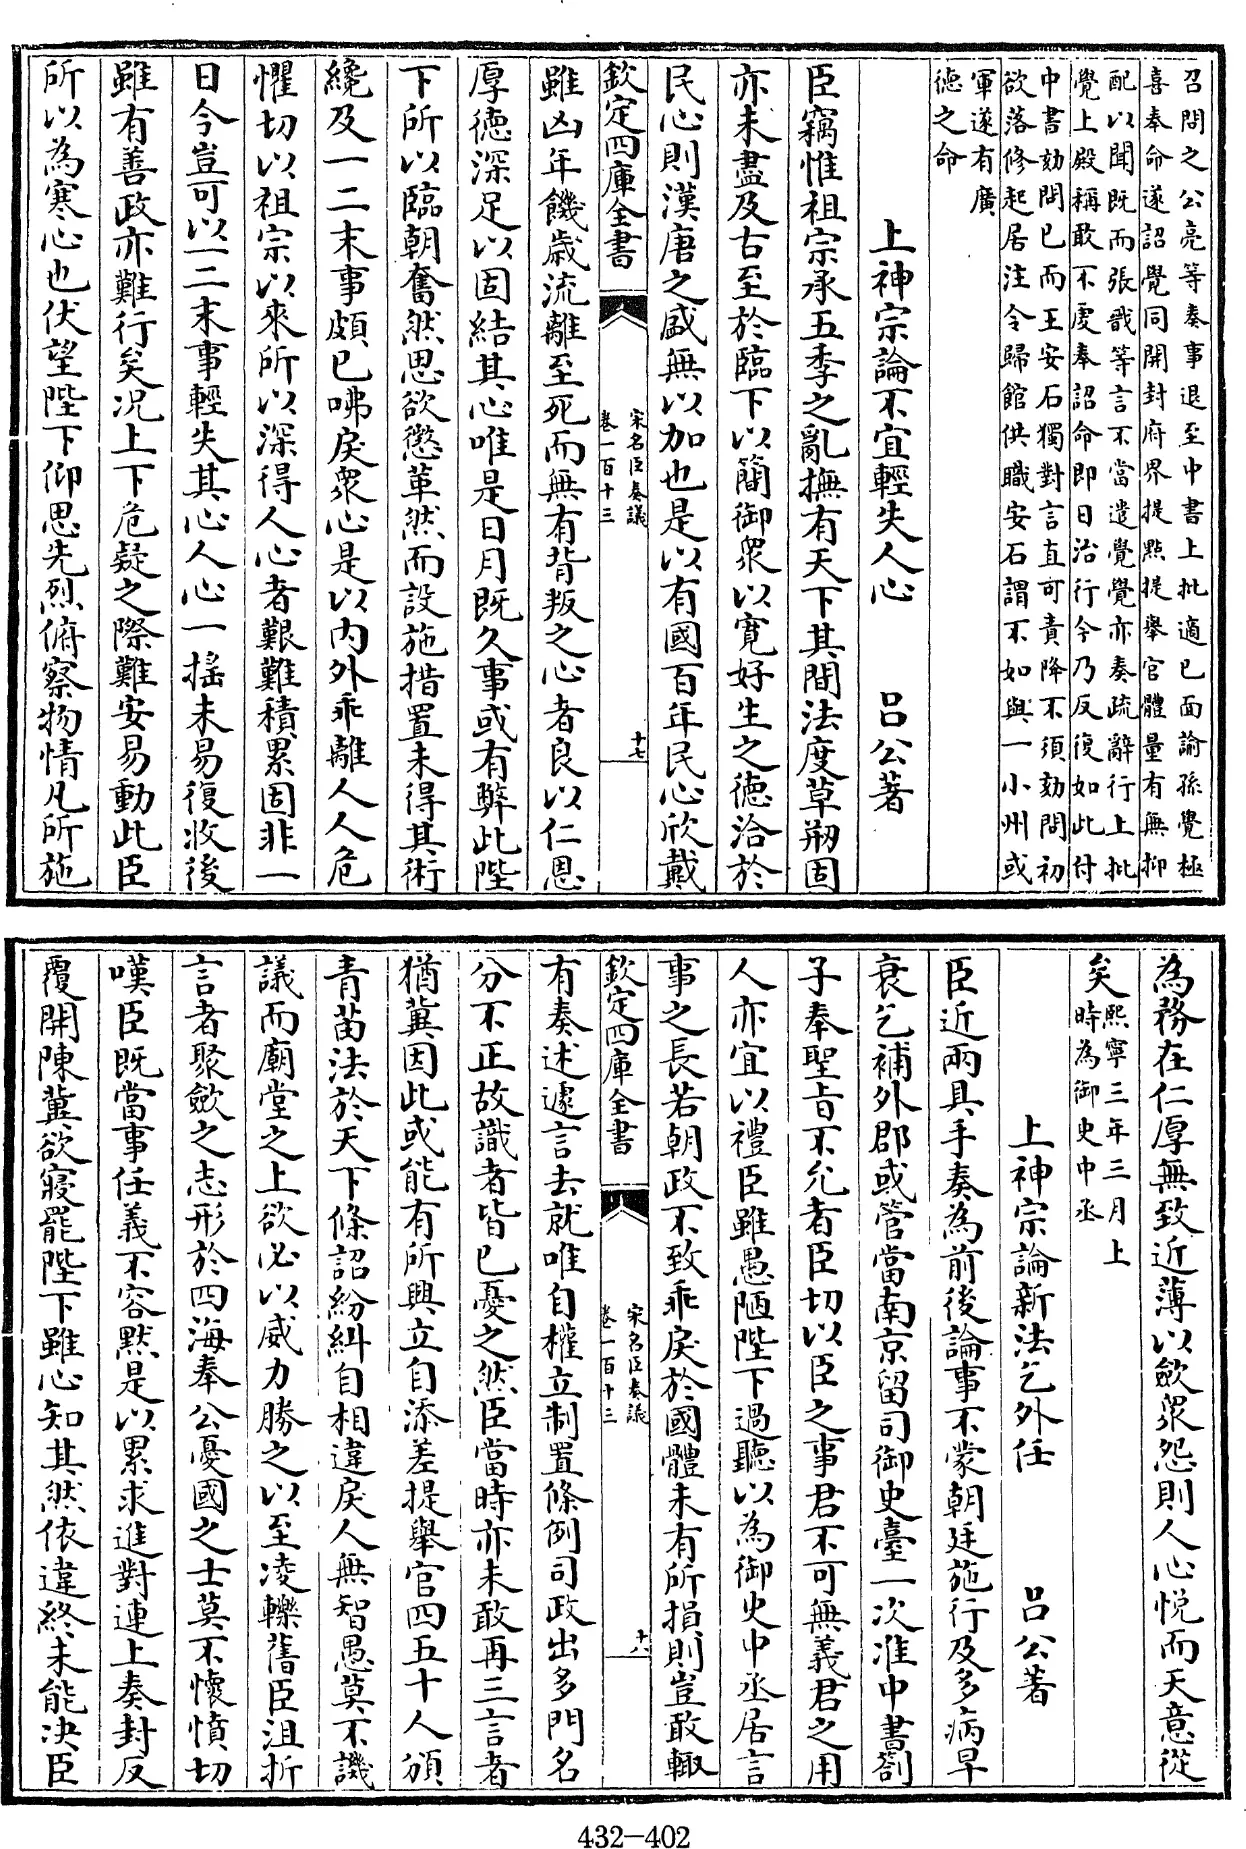 召問之公亮等奏事退至中書上批適已面諭孫覺極
喜奉命遂詔覺同開封府界提點提舉官體量有無抑
配以聞既而張戩等言不當遣覺覺亦奏疏辭行上批
覺上殿稱敢不虔奉詔命即日治行今乃反復如此付
中書劾問已而王安石獨對言直可責降不須劾問初
欲落修起居注令歸館供職安石謂不如與一小州或
軍遂有廣
德之命
上神宗論不宜輕失人心　　吕公著
臣竊惟祖宗承五季之亂撫有天下其間法度草剏固
亦未盡及古至於臨下以簡御衆以寛好生之徳洽於
民心則漢唐之盛無以加也是以有國百年民心欣戴
欽定四庫全書
宋名臣奏議
卷一百十三
十七
雖凶年饑歳流離至死而無有背叛之心者良以仁恩
厚德深足以固結其心唯是日月既久事或有弊此陛
下所以臨朝奮然思欲懲革然而設施措置未得其術
纔及一二末事頗已咈戾衆心是以内外乖離人人危
懼切以祖宗以來所以深得人心者艱難積累固非一
日今豈可以一二末事輕失其心人心一揺未易復收後
雖有善政亦難行矣况上下危疑之際難安易動此臣
所以為寒心也伏望陛下仰思先烈俯察物情凡所施
為務在仁厚無致近薄以斂衆怨則人心悦而天意從
矣熙寧三年三月上
時為御史中丞
上神宗論新法乞外任　　吕公著
臣近兩具手奏為前後論事不蒙朝廷施行及多病早
衰乞補外郡或管當南京留司御史臺一次准中書劄
子奉聖旨不允者臣切以臣之事君不可無義君之用
人亦宜以禮臣雖愚陋陛下過聽以為御史中丞居言
事之長若朝政不致乖戾於國體未有所損則豈敢輙
欽定四庫全書
宋名臣奏議
卷一百十三
十八
有奏述遽言去就唯自權立制置條例司政出多門名
分不正故識者皆已憂之然臣當時亦未敢再三言者
猶冀因此或能有所興立自添差提舉官四五十人頒
青苗法於天下條詔紛糾自相違戾人無智愚莫不譏
議而廟堂之上欲必以威力勝之以至凌轢舊臣沮折
言者聚斂之志形於四海奉公憂國之士莫不懐憤切
嘆臣既當事任義不容黙是以累求進對連上奏封反
覆開陳冀欲寢罷陛下雖心知其然依違終未能決臣
432-402